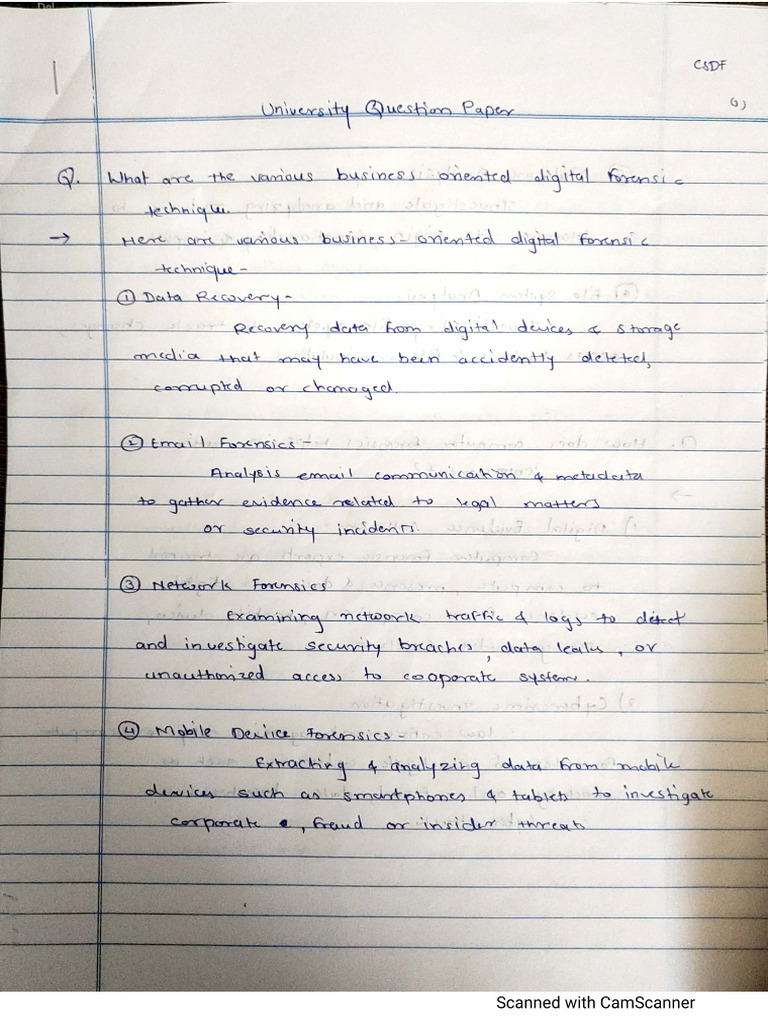 CSDF
(1)
University Question Paper
Q. What are the various business oriented digital forensic
technique.
→ Here are various business-oriented digital forensic
technique-
① Data Recovery-
Recovery data from digital devices & storage
media that may have been accidently deleted,
corrupted or chamaged.
② Email Forensics-
Analysis email communication & metadata
to gather evidence related to legal matters
or security incidents.
③ Network Forensics
Examining network traffic & logs to detect
and investigate security breaches, data leaks, or
unauthorized access to cooporate system.
④ Mobile Device Forensics-
Extracting & analyzing data from mobile
devices such as smartphones & tablets to investigate
corporate , fraud or insider threats
Scanned with CamScanner